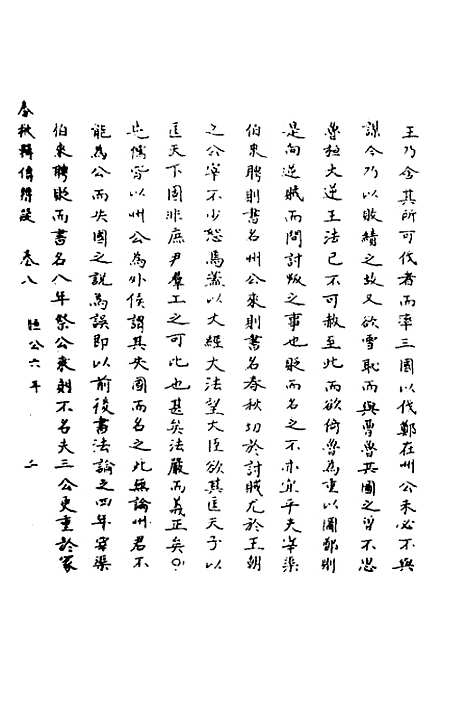 王乃舍其所可伐者而率三國以伐鄭在州公未必不與
謀今乃以敗績之故又欲雪恥而與曹魯共圖之曾不思
魯桓大逆王法已不可赦至此而欲倚魯為重以圖鄭則
是向逆賊而問討叛之事也貶而名之不亦宜乎夫宰渠
伯來聘則書名州公來則書名春秋切於討賊尤於王朝
之公宰不少恕焉蓋以大經大法望大臣欲其匡天子以
匡天下固非庶尹羣工之可比也甚矣法嚴而義正矣〇
先儒皆以州公為外侯謂其失國而名之此無論州君不
能為公而失國之說為誤即以前後書法論之四年宰渠
伯來聘貶而書名八年祭公來則不名夫三公更重於冢
春秋輯傳辨疑 卷八 桓公六年 二